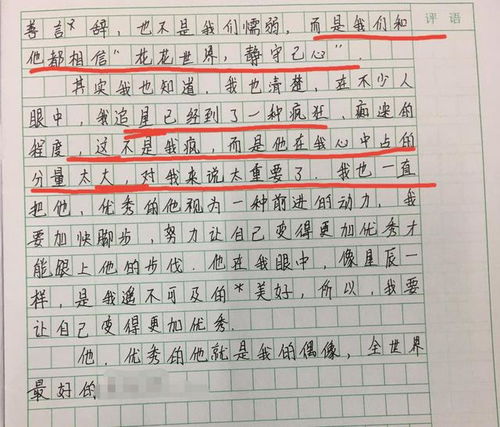 评语
善言*辞，也不是我们懦弱，而是我们和
他都相信“花花世界，静守己心”．
其实我也知道，我也清楚，在不少人
眼中，我追星已经到了一种疯狂、痴迷的
程度，这不是我疯，而是他在我心中占的
分量太大，对我来说太重要了．我也一直
把他，优秀的他视为一种前进的动力，我
要加快脚步，努力让自己变得更加优秀才
能跟上他的步伐．他在我眼中，像星辰一
样，是我遥不可及的*美好，所以，我要
让自己变得更加优秀．
他，优秀的他就是我的偶像，全世界
最好的